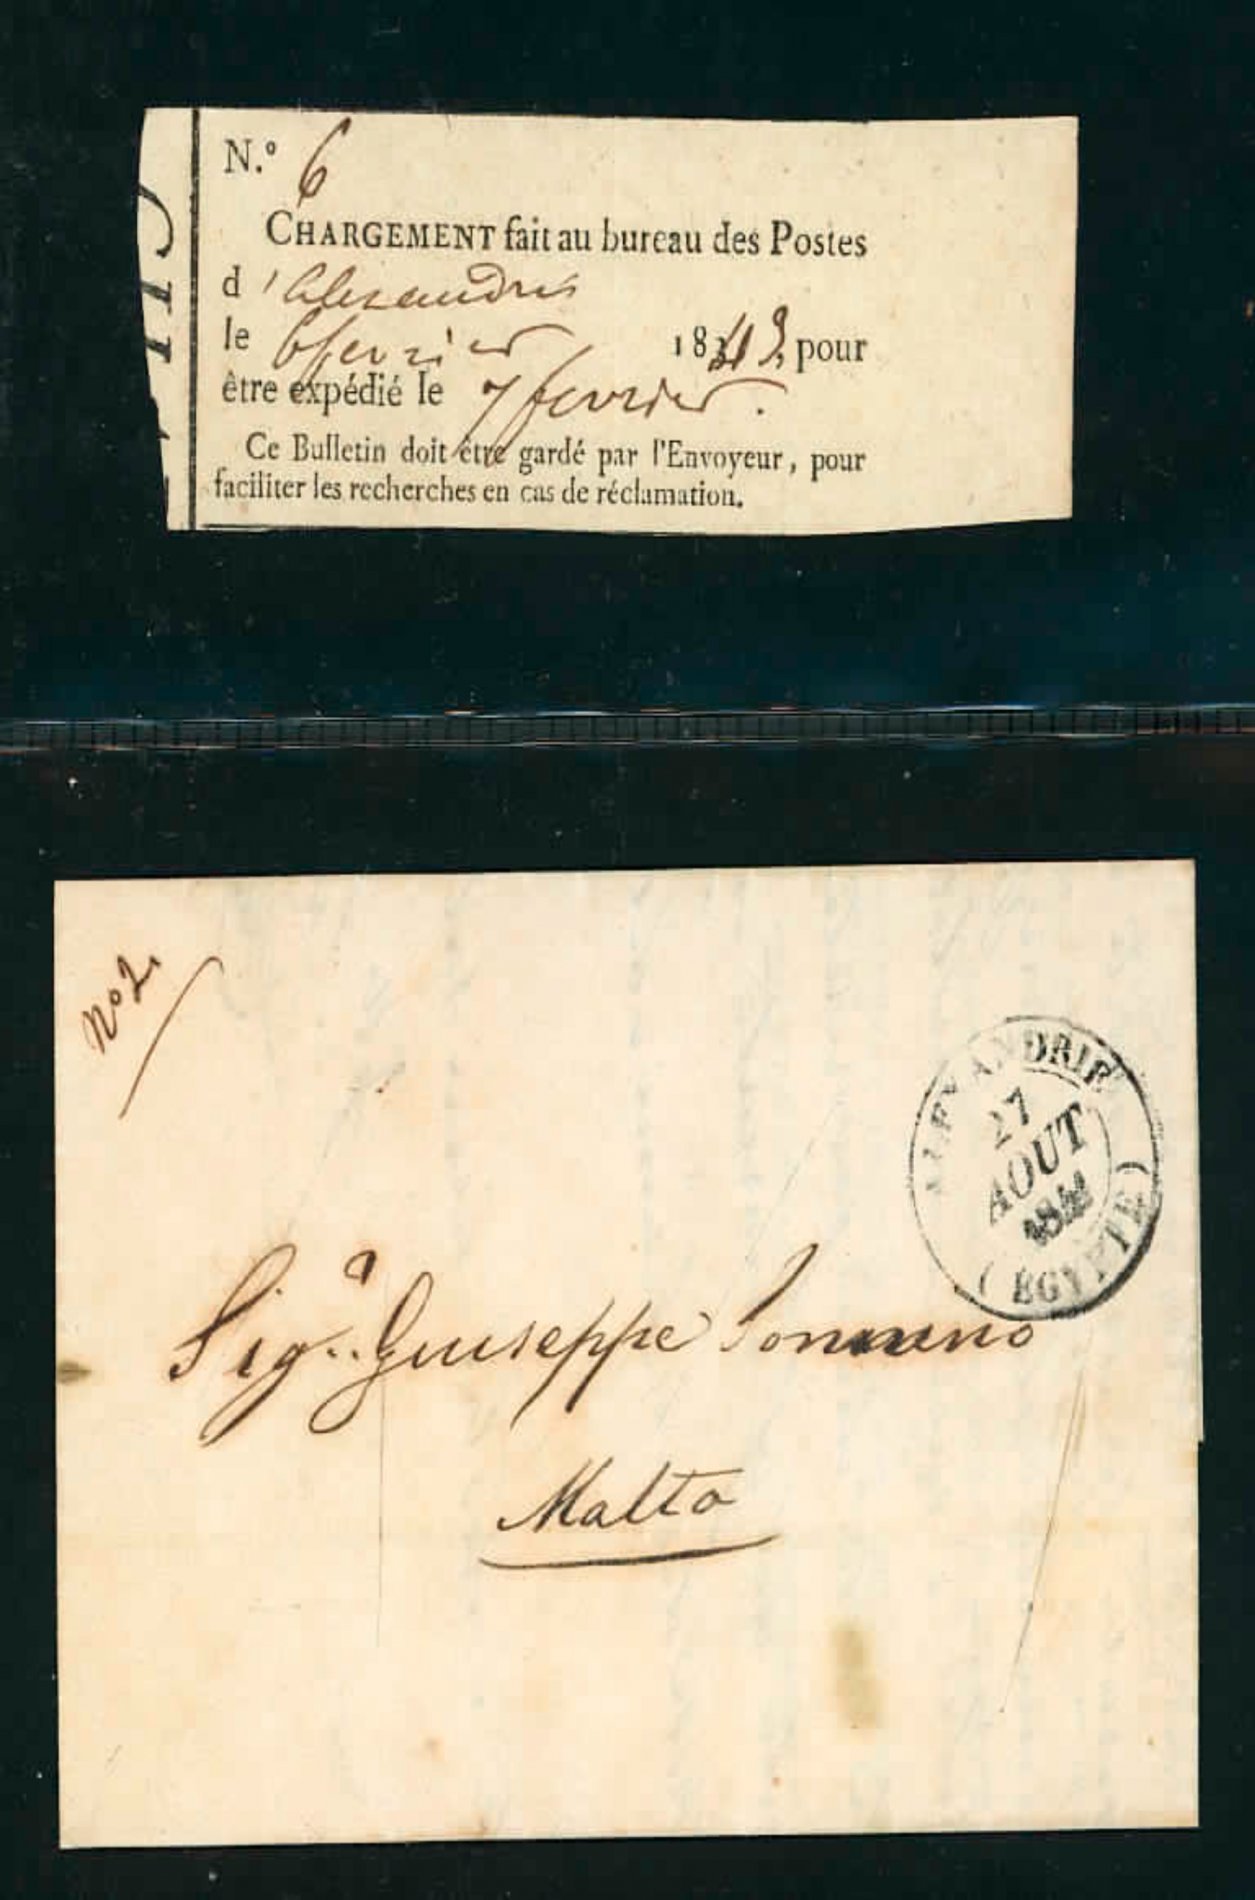 N.º 6
CHARGEMENT fait au bureau des Postes
d'Alexandrie
le 6 fevrier 1843, pour
être expédié le 7 fevrier.
Ce Bulletin doit être gardé par l'Envoyeur, pour
faciliter les recherches en cas de réclamation.
Nº 2.
ALEXANDRIE
27
AOUT
(EGYPTE)
Sigr. Giuseppe
Malta